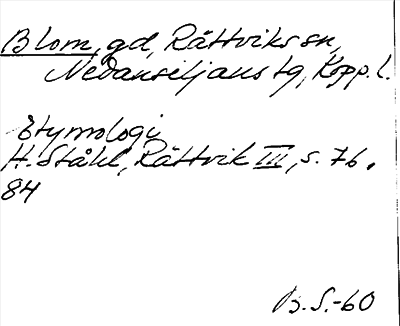 Blom, gd, Rättviks sn,
Nedansiljans tg, Kopp. l.
Etymologi
H. Ståhl, Rättvik III, s. 76.
84
B.S.-60